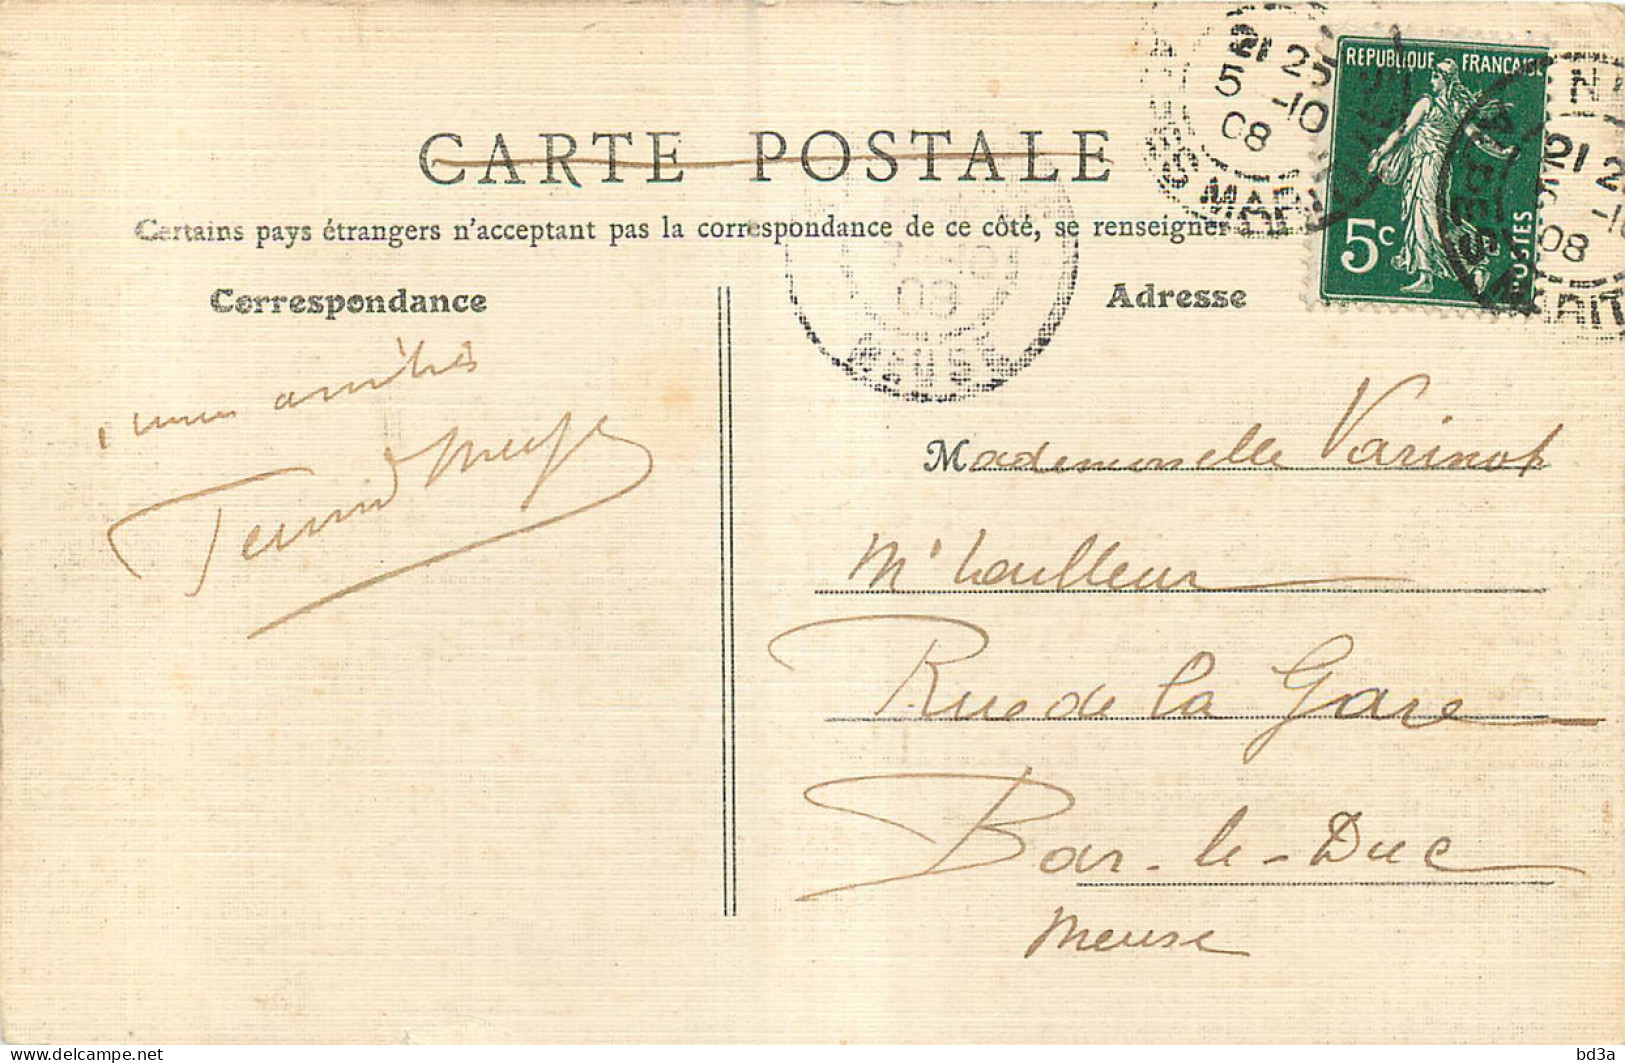 CARTE POSTALE
Certains pays étrangers n'acceptant pas la correspondance de ce côté, se renseigner à la
Correspondance
Adresse
REPUBLIQUE FRANÇAISE
5c
POSTES
21 25
5 -10
08
21 2
-10
08
08
MEUSE
amitiés
Mademoiselle Varinot
Md tailleur
Rue de la Gare
Bar-le-Duc
Meuse
bd3a